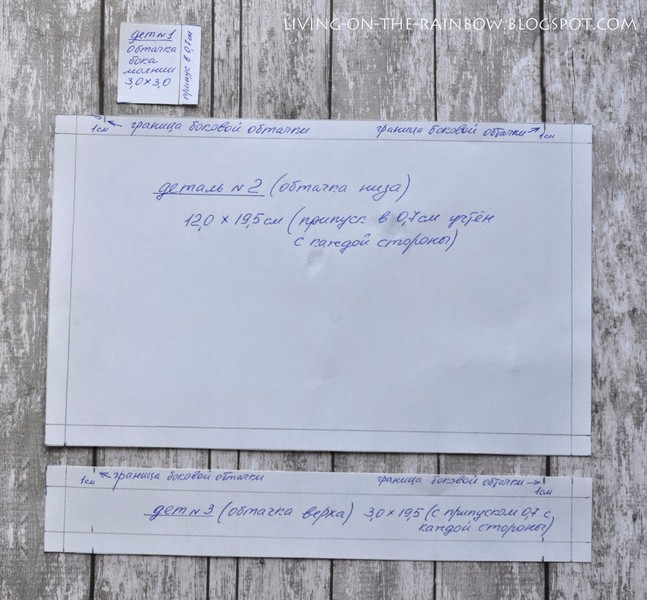 LIVING-ON-THE-RAINBOW.BLOGSPOT.COM
дет №1
обтачка
бока
молнии
3,0 × 3,0
припуск в 0,7см
1см ← граница боковой обтачки
граница боковой обтачки → 1см
деталь №2 (обтачка низа)
12,0 × 19,5 см (припуск в 0,7 см учтён
с каждой стороны)
1см ← граница боковой обтачки
граница боковой обтачки → 1см
дет №3 (обтачка верха) 3,0 × 19,5 (с припуском 0,7 с
каждой стороны)